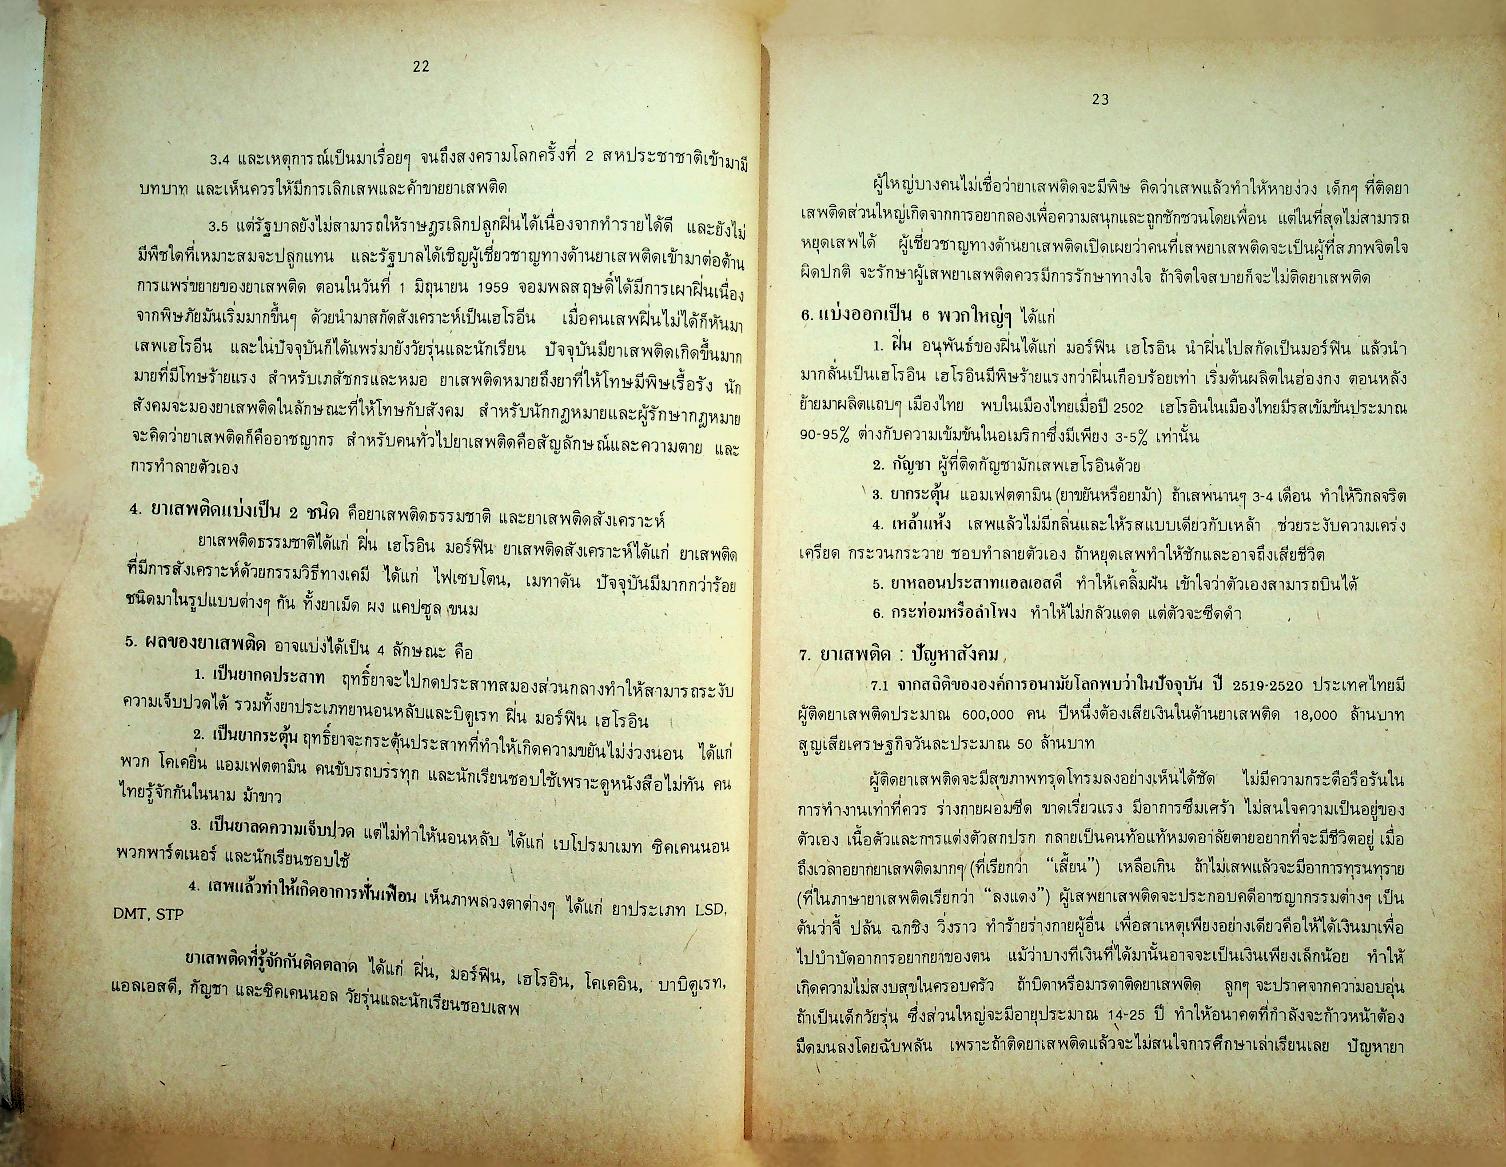 22
3.4 และเหตุการณ์เป็นมาเรื่อยๆ จนถึงสงครามโลกครั้งที่ 2 สหประชาชาติเข้ามามี
บทบาท และเห็นควรให้มีการเลิกเสพและค้าขายยาเสพติด
3.5 แต่รัฐบาลยังไม่สามารถให้ราษฎรเลิกปลูกฝิ่นได้เนื่องจากทำรายได้ดี และยังไม่
มีพืชใดที่เหมาะสมจะปลูกแทน และรัฐบาลได้เชิญผู้เชี่ยวชาญทางด้านยาเสพติดเข้ามาต่อต้าน
การแพร่ขยายของยาเสพติด ตอนในวันที่ 1 มิถุนายน 1959 จอมพลสฤษดิ์ได้มีการเผาฝิ่นเนื่อง
จากพิษภัยมันเริ่มมากขึ้นๆ ด้วยนำมาสกัดสังเคราะห์เป็นเฮโรอีน เมื่อคนเสพฝิ่นไม่ได้ก็หันมา
เสพเฮโรอีน และในปัจจุบันก็ได้แพร่มายังวัยรุ่นและนักเรียน ปัจจุบันมียาเสพติดเกิดขึ้นมาก
มายที่มีโทษร้ายแรง สำหรับเภสัชกรและหมอ ยาเสพติดหมายถึงยาที่ให้โทษมีพิษเรื้อรัง นัก
สังคมจะมองยาเสพติดในลักษณะที่ให้โทษกับสังคม สำหรับนักกฎหมายและผู้รักษากฎหมาย
จะคิดว่ายาเสพติดก็คืออาชญากร สำหรับคนทั่วไปยาเสพติดคือสัญลักษณ์และความตาย และ
การทำลายตัวเอง
4. ยาเสพติดแบ่งเป็น 2 ชนิด คือยาเสพติดธรรมชาติ และยาเสพติดสังเคราะห์
ยาเสพติดธรรมชาติได้แก่ ฝิ่น เฮโรอิน มอร์ฟิน ยาเสพติดสังเคราะห์ได้แก่ ยาเสพติด
ที่มีการสังเคราะห์ด้วยกรรมวิธีทางเคมี ได้แก่ ไฟเซบโตน, เมทาดัน ปัจจุบันมีมากกว่าร้อย
ชนิดมาในรูปแบบต่างๆ กัน ทั้งยาเม็ด ผง แคปซูล ขนม
5. ผลของยาเสพติด อาจแบ่งได้เป็น 4 ลักษณะ คือ
1. เป็นยากดประสาท ฤทธิ์ยาจะไปกดประสาทสมองส่วนกลางทำให้สามารถระงับ
ความเจ็บปวดได้ รวมทั้งยาประเภทยานอนหลับและบิดูเรท ฝิ่น มอร์ฟิน เฮโรอิน
2. เป็นยากระตุ้น ฤทธิ์ยาจะกระตุ้นประสาทที่ทำให้เกิดความขยันไม่ง่วงนอน ได้แก่
พวก โคเคยิ่น แอมเฟตตามิน คนขับรถบรรทุก และนักเรียนชอบใช้เพราะดูหนังสือไม่ทัน คน
ไทยรู้จักกันในนาม ม้าขาว
3. เป็นยาลดความเจ็บปวด แต่ไม่ทำให้นอนหลับ ได้แก่ เบโปรมาเมท ซิคเคนนอน
พวกพาร์ตเนอร์ และนักเรียนชอบใช้
4. เสพแล้วทำให้เกิดอาการฟั่นเฟือน เห็นภาพลวงตาต่างๆ ได้แก่ ยาประเภท LSD,
DMT, STP
ยาเสพติดที่รู้จักกันติดตลาด ได้แก่ ฝิ่น, มอร์ฟิน, เฮโรอิน, โคเคอิน, บาบิตูเรท,
แอลเอสดี, กัญชา และซิคเคนนอล วัยรุ่นและนักเรียนชอบเสพ
23
ผู้ใหญ่บางคนไม่เชื่อว่ายาเสพติดจะมีพิษ คิดว่าเสพแล้วทำให้หายง่วง เด็กๆ ที่ติดยา
เสพติดส่วนใหญ่เกิดจากการอยากลองเพื่อความสนุกและถูกชักชวนโดยเพื่อน แต่ในที่สุดไม่สามารถ
หยุดเสพได้ ผู้เชี่ยวชาญทางด้านยาเสพติดเปิดเผยว่าคนที่เสพยาเสพติดจะเป็นผู้ที่สภาพจิตใจ
ผิดปกติ จะรักษาผู้เสพยาเสพติดควรมีการรักษาทางใจ ถ้าจิตใจสบายก็จะไม่ติดยาเสพติด
6. แบ่งออกเป็น 6 พวกใหญ่ๆ ได้แก่
1. ฝิ่น อนุพันธ์ของฝิ่นได้แก่ มอร์ฟิน เฮโรอิน นำฝิ่นไปสกัดเป็นมอร์ฟิน แล้วนำ
มากลั่นเป็นเฮโรอิน เฮโรอินมีพิษร้ายแรงกว่าฝิ่นเกือบร้อยเท่า เริ่มต้นผลิตในฮ่องกง ตอนหลัง
ย้ายมาผลิตแถบๆ เมืองไทย พบในเมืองไทยเมื่อปี 2502 เฮโรอินในเมืองไทยมีรสเข้มข้นประมาณ
90-95% ต่างกับความเข้มข้นในอเมริกาซึ่งมีเพียง 3-5% เท่านั้น
2. กัญชา ผู้ที่ติดกัญชามักเสพเฮโรอินด้วย
3. ยากระตุ้น แอมเฟตตามิน (ยาขยันหรือยาม้า) ถ้าเสพนานๆ 3-4 เดือน ทำให้วิกลจริต
4. เหล้าแห้ง เสพแล้วไม่มีกลิ่นและให้รสแบบเดียวกับเหล้า ช่วยระงับความเคร่ง
เครียด กระวนกระวาย ชอบทำลายตัวเอง ถ้าหยุดเสพทำให้ชักและอาจถึงเสียชีวิต
5. ยาหลอนประสาทแอลเอสดี ทำให้เคลิ้มฝัน เข้าใจว่าตัวเองสามารถบินได้
6. กระท่อมหรือลำโพง ทำให้ไม่กลัวแดด แต่ตัวจะซีดดำ
7. ยาเสพติด : ปัญหาสังคม
7.1 จากสถิติขององค์การอนามัยโลกพบว่าในปัจจุบัน ปี 2519-2520 ประเทศไทยมี
ผู้ติดยาเสพติดประมาณ 600,000 คน ปีหนึ่งต้องเสียเงินในด้านยาเสพติด 18,000 ล้านบาท
สูญเสียเศรษฐกิจวันละประมาณ 50 ล้านบาท
ผู้ติดยาเสพติดจะมีสุขภาพทรุดโทรมลงอย่างเห็นได้ชัด ไม่มีความกระตือรือรันใน
การทำงานเท่าที่ควร ร่างกายผอมซีด ขาดเรี่ยวแรง มีอาการซึมเศร้า ไม่สนใจความเป็นอยู่ของ
ตัวเอง เนื้อตัวและการแต่งตัวสกปรก กลายเป็นคนท้อแท้หมดอาลัยตายอยากที่จะมีชีวิตอยู่ เมื่อ
ถึงเวลาอยากยาเสพติดมากๆ (ที่เรียกว่า “เสี้ยน”) เหลือเกิน ถ้าไม่เสพแล้วจะมีอาการทุรนทุราย
(ที่ในภาษายาเสพติดเรียกว่า “ลงแดง”) ผู้เสพยาเสพติดจะประกอบคดีอาชญากรรมต่างๆ เป็น
ต้นว่าจี้ ปล้น ฉกชิง วิ่งราว ทำร้ายร่างกายผู้อื่น เพื่อสาเหตุเพียงอย่างเดียวคือให้ได้เงินมาเพื่อ
ไปบำบัดอาการอยากยาของตน แม้ว่าบางทีเงินที่ได้มานั้นอาจจะเป็นเงินเพียงเล็กน้อย ทำให้
เกิดความไม่สงบสุขในครอบครัว ถ้าบิดาหรือมารดาติดยาเสพติด ลูกๆ จะปราศจากความอบอุ่น
ถ้าเป็นเด็กวัยรุ่น ซึ่งส่วนใหญ่จะมีอายุประมาณ 14-25 ปี ทำให้อนาคตที่กำลังจะก้าวหน้าต้อง
มืดมนลงโดยฉับพลัน เพราะถ้าติดยาเสพติดแล้วจะไม่สนใจการศึกษาเล่าเรียนเลย ปัญหายา